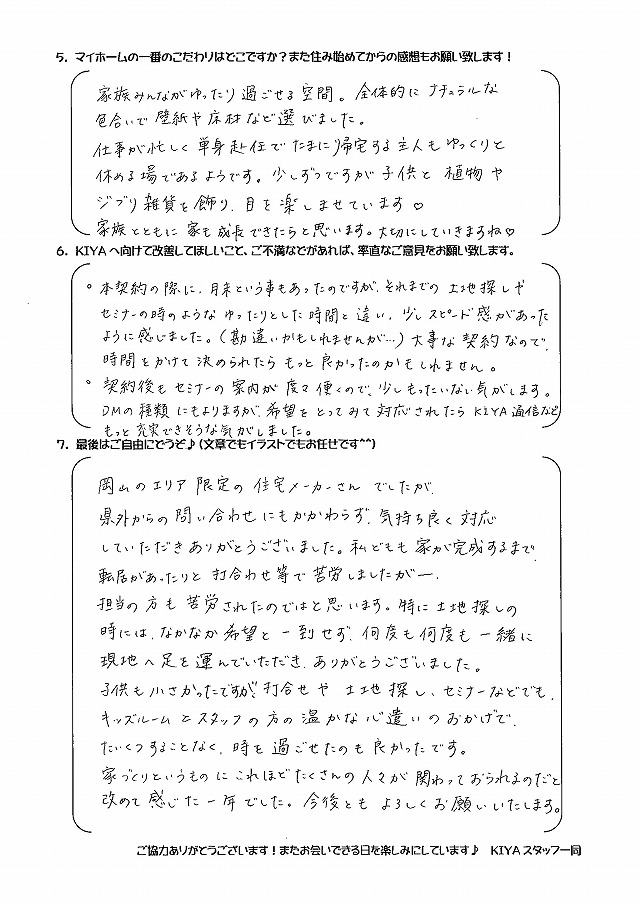 5. マイホームの一番のこだわりはどこですか？また住み始めてからの感想もお願い致します！
家族みんながゆったり過ごせる空間。全体的にナチュラルな
色合いで壁紙や床材など選びました。
仕事が忙しく単身赴任でたまに帰宅する主人もゆっくりと
休める場であるようです。少しずつですが子供と植物や
ジブリ雑貨を飾り、目を楽しませています♡
家族とともに家も成長できたらと思います。大切にしていきますね♡
6. KIYAへ向けて改善してほしいこと、ご不満などがあれば、率直なご意見をお願い致します。
○ 本契約の際に、月末という事もあったのですが、それまでの土地探しや
セミナーの時のようなゆったりとした時間と違い、少しスピード感があった
ように感じました。（勘違いかもしれませんが…）大事な契約なので、
時間をかけて決められたらもっと良かったのかもしれません。
○ 契約後もセミナーの案内が度々届くので、少しもったいない気がします。
DMの種類にもよりますが、希望をとってみて対応されたらKIYA通信など
もっと充実できそうな気がしました。
7. 最後はご自由にどうぞ♪（文章でもイラストでもお任せです^^）
岡山のエリア限定の住宅メーカーさんでしたが、
県外からの問い合わせにもかかわらず、気持ち良く対応
していただきありがとうございました。私どもも家が完成するまで
転居があったりと打合わせ等で苦労しましたがー、
担当の方も苦労されたのではと思います。特に土地探しの
時には、なかなか希望と一到せず、何度も何度も一緒に
現地へ足を運んでいただき、ありがとうございました。
子供も小さかったですが、打合せや土地探し、セミナーなどでも、
キッズルームとスタッフの方の温かな心遣いのおかげで、
たいくつすることなく、時を過ごせたのも良かったです。
家づくりというものにこれほどたくさんの人々が関わっておられるのだと
改めて感じた一年でした。今後ともよろしくお願いいたします。
ご協力ありがとうございます！またお会いできる日を楽しみにしています♪ KIYAスタッフ一同